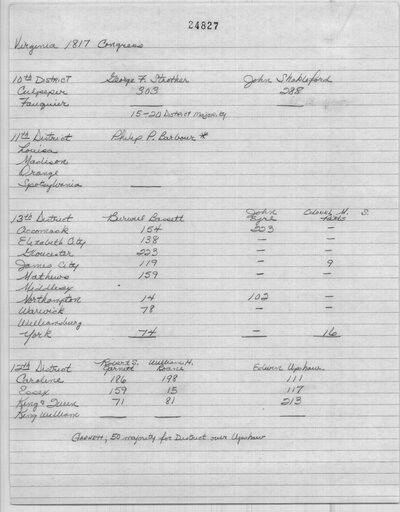 24827
Virginia 1817 Congress
10th District George F. Strother John Shakleford
Culpeper 303 288
Fauquier
15-20 District Majority
11th District Philip P. Barbour *
Louisa
Madison
Orange
Spotsylvania
13th District Burwell Bassett John Eyre M. S.
Accomack 154 223 —
Elizabeth City 138 — —
Gloucester 223 — —
James City 119 — 9
Mathews 159 — —
Middlesex
Northampton 14 102 —
Warwick 78 — —
Williamsburg
York 74 — 16
12th District Robert S. Garnett William H. Roane Edwin Upshaw
Caroline 186 198 111
Essex 159 15 117
King & Queen 71 81 213
King William
Garnett, 50 majority for District over Upshaw